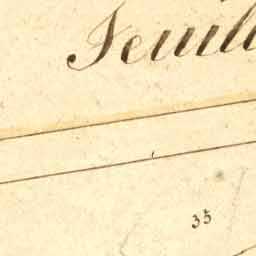 Feuill
35